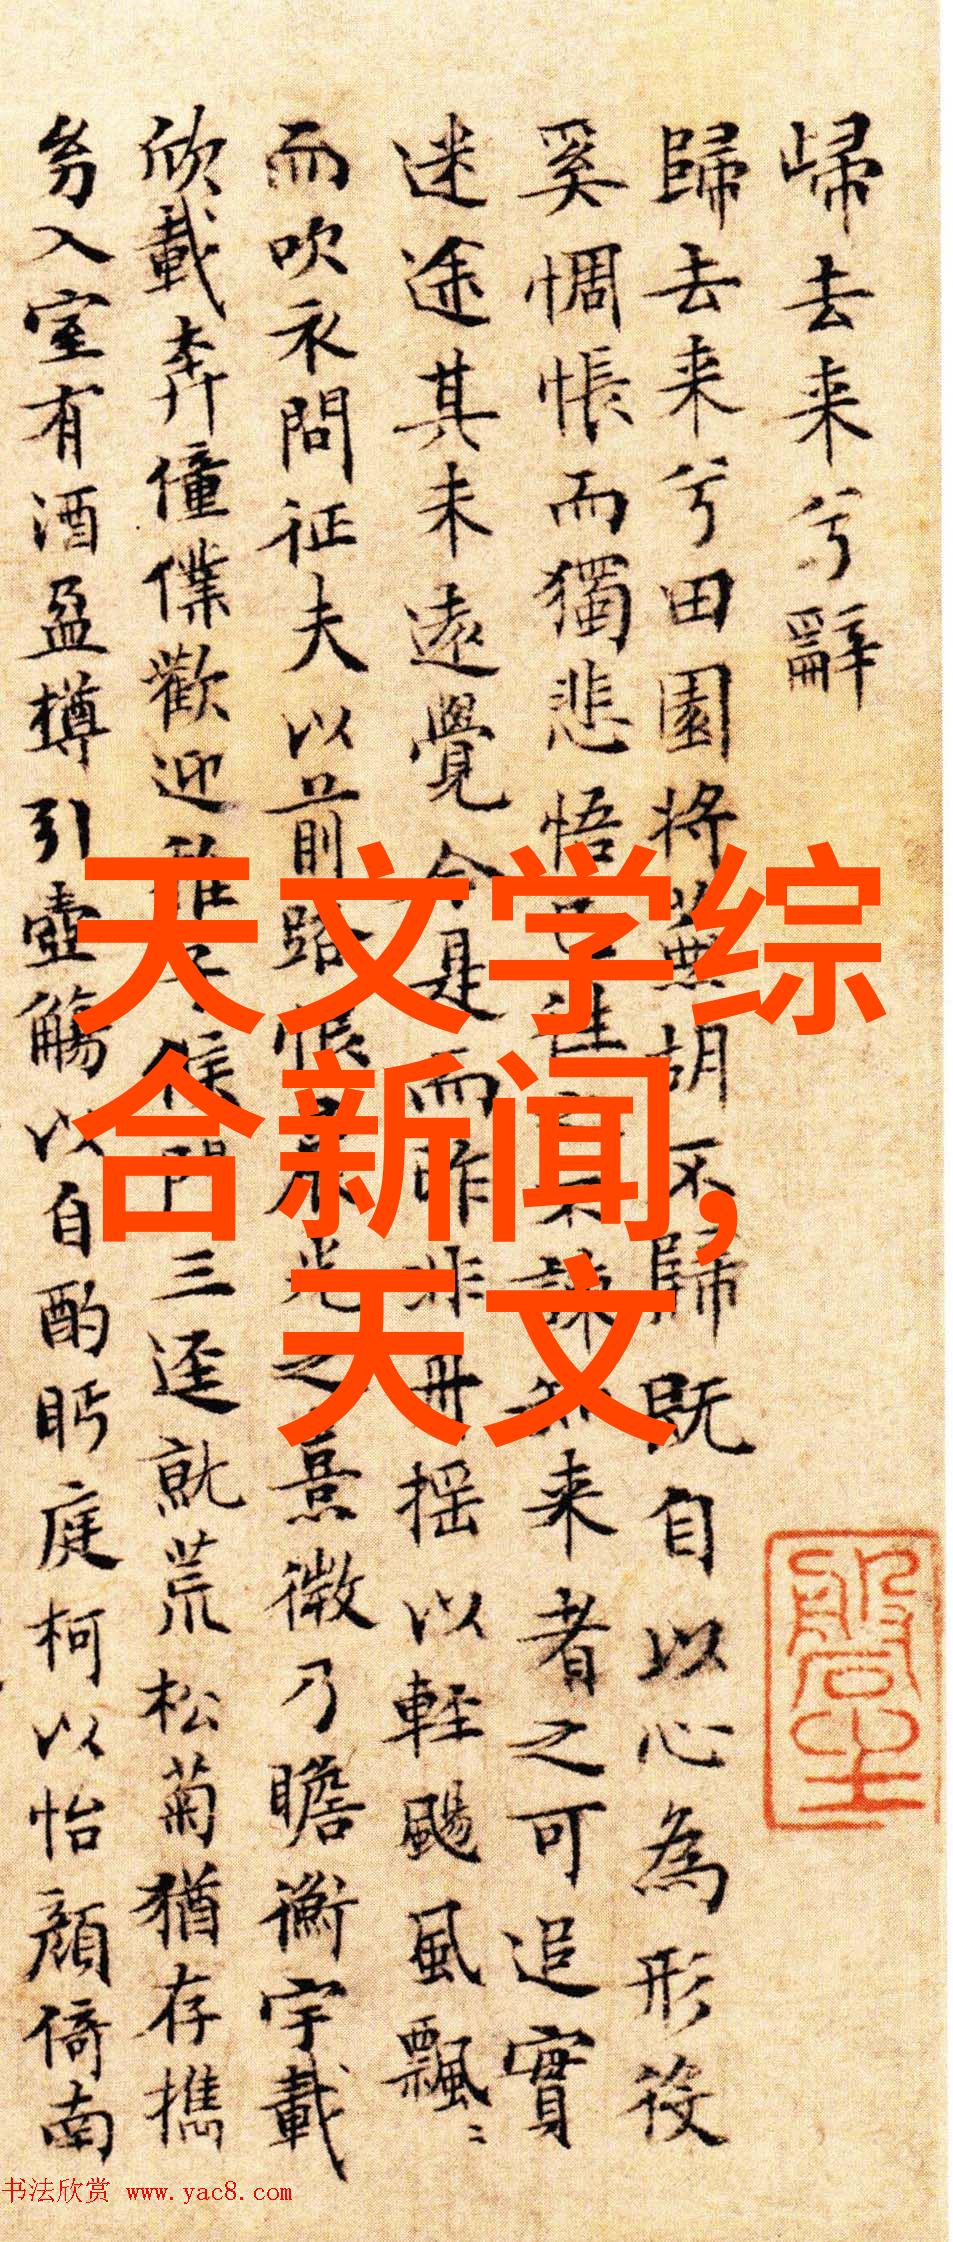 歸去来兮辭
歸去来兮田園将蕪胡不歸既自以心為形役
奚惆悵而獨悲悟已往之不諫知来者之可追實
迷途其未遠覺今是而昨非舟揺以軽颺風飄〻
而吹衣問征夫以前路恨晨光之熹微乃瞻衡宇載
欣載奔僮僕歡迎稚子候門三逕就荒松菊猶存携
幼入室有酒盈樽引壺觴以自酌眄庭柯以怡顔倚南
天文学综
合新闻,
天文
书法欣赏 www.yac8.com